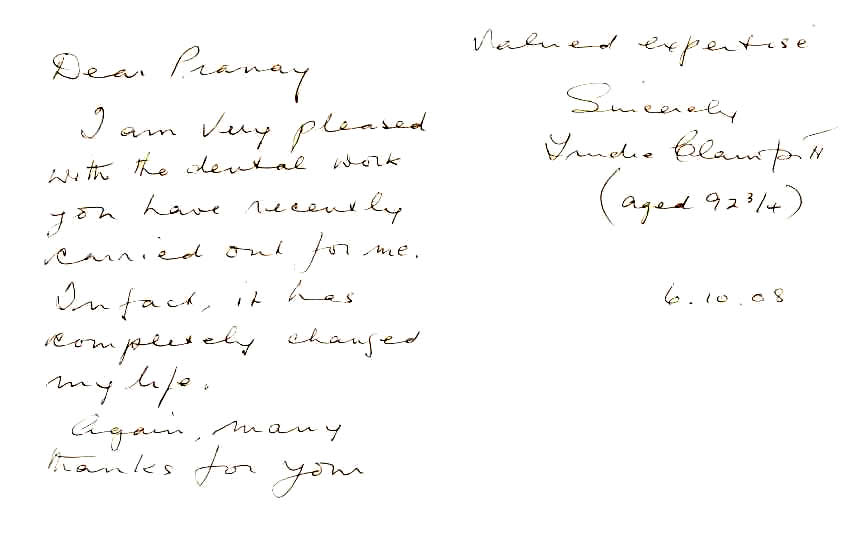 Dear Pranay
I am very pleased
with the dental work
you have recently
carried out for me.
In fact, it has
completely changed
my life.
Again, many
thanks for your
Valued expertise
Sincerely
(aged 92 3/4)
6.10.08